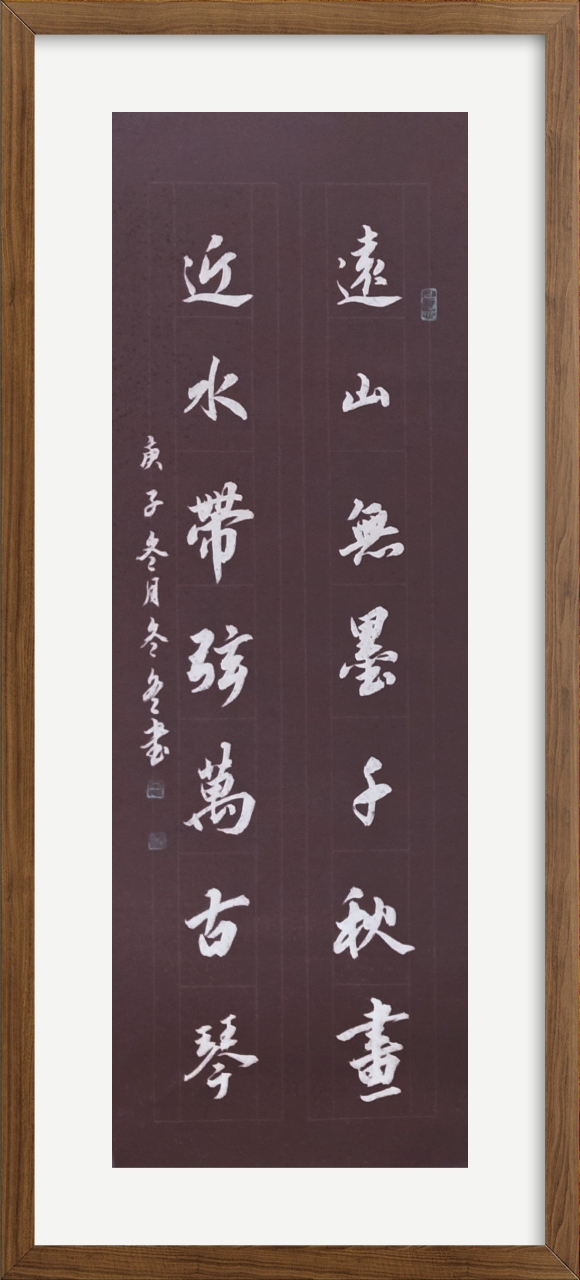 遠山無墨千秋畫
近水帶弦萬古琴
庚子冬月冬冬書